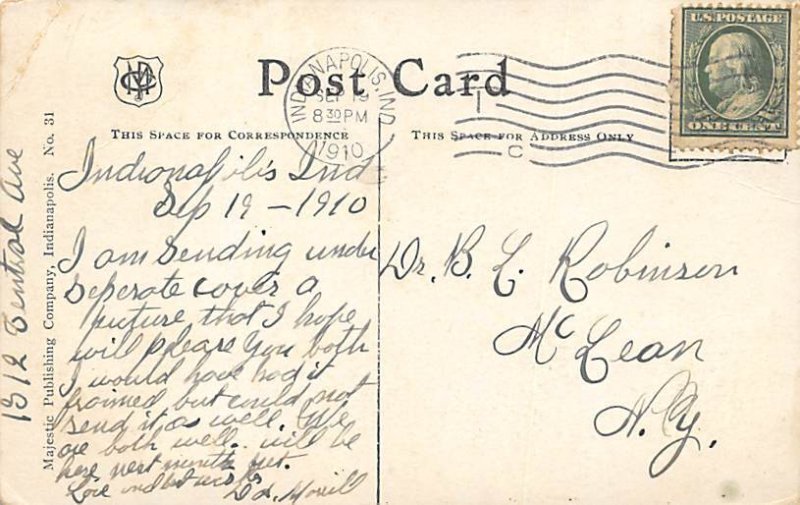 Post Card
U.S. POSTAGE
ONE CENT
INDIANAPOLIS, IND.
SEP 19
8 30 PM
1910
C
THIS SPACE FOR CORRESPONDENCE
THIS SPACE FOR ADDRESS ONLY
Majestic Publishing Company, Indianapolis. No. 31
1312 Central Ave
Indianapolis Ind
Sep 19 - 1910
I am sending under
seperate cover a
picture that I hope
will please you both
I would have had it
framed but could not
send it as well. We
are both well. will be
here next month yet.
Love and best wishes
Morrill
Dr. B. L. Robinson
McLean
N.Y.